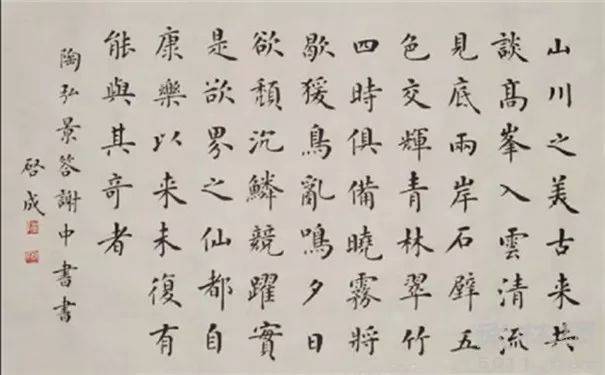 山川之美古来共
談髙峯入雲清流
見底兩岸石壁五
色交輝青林翠竹
四時俱備曉霧將
歇猨鳥亂鳴夕日
欲頽沉鱗競躍實
是欲界之仙都自
康樂以来未復有
能與其奇者
陶弘景答謝中書書
啓成